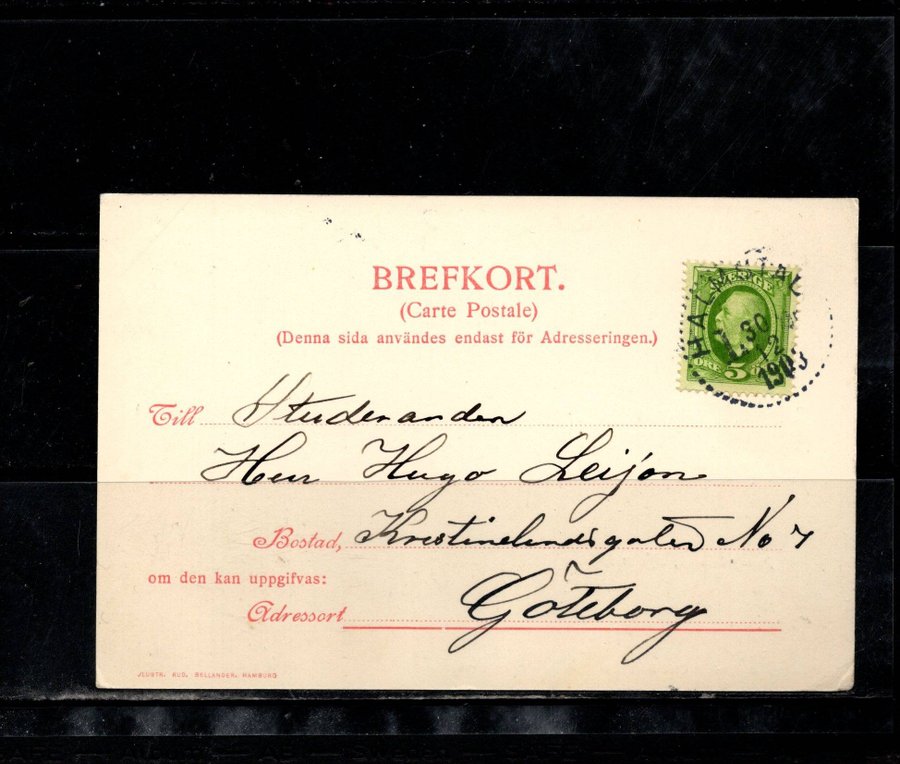 BREFKORT.
(Carte Postale)
(Denna sida användes endast för Adresseringen.)
SVERIGE
ÖRE 5
HALMSTAD
1903
Till Studeranden
Herr Hugo Leijon
Bostad, Kristinelundsgatan No 7
om den kan uppgifvas:
Adressort Göteborg
JLUSTR. RUD. BELLANDER, HAMBURG